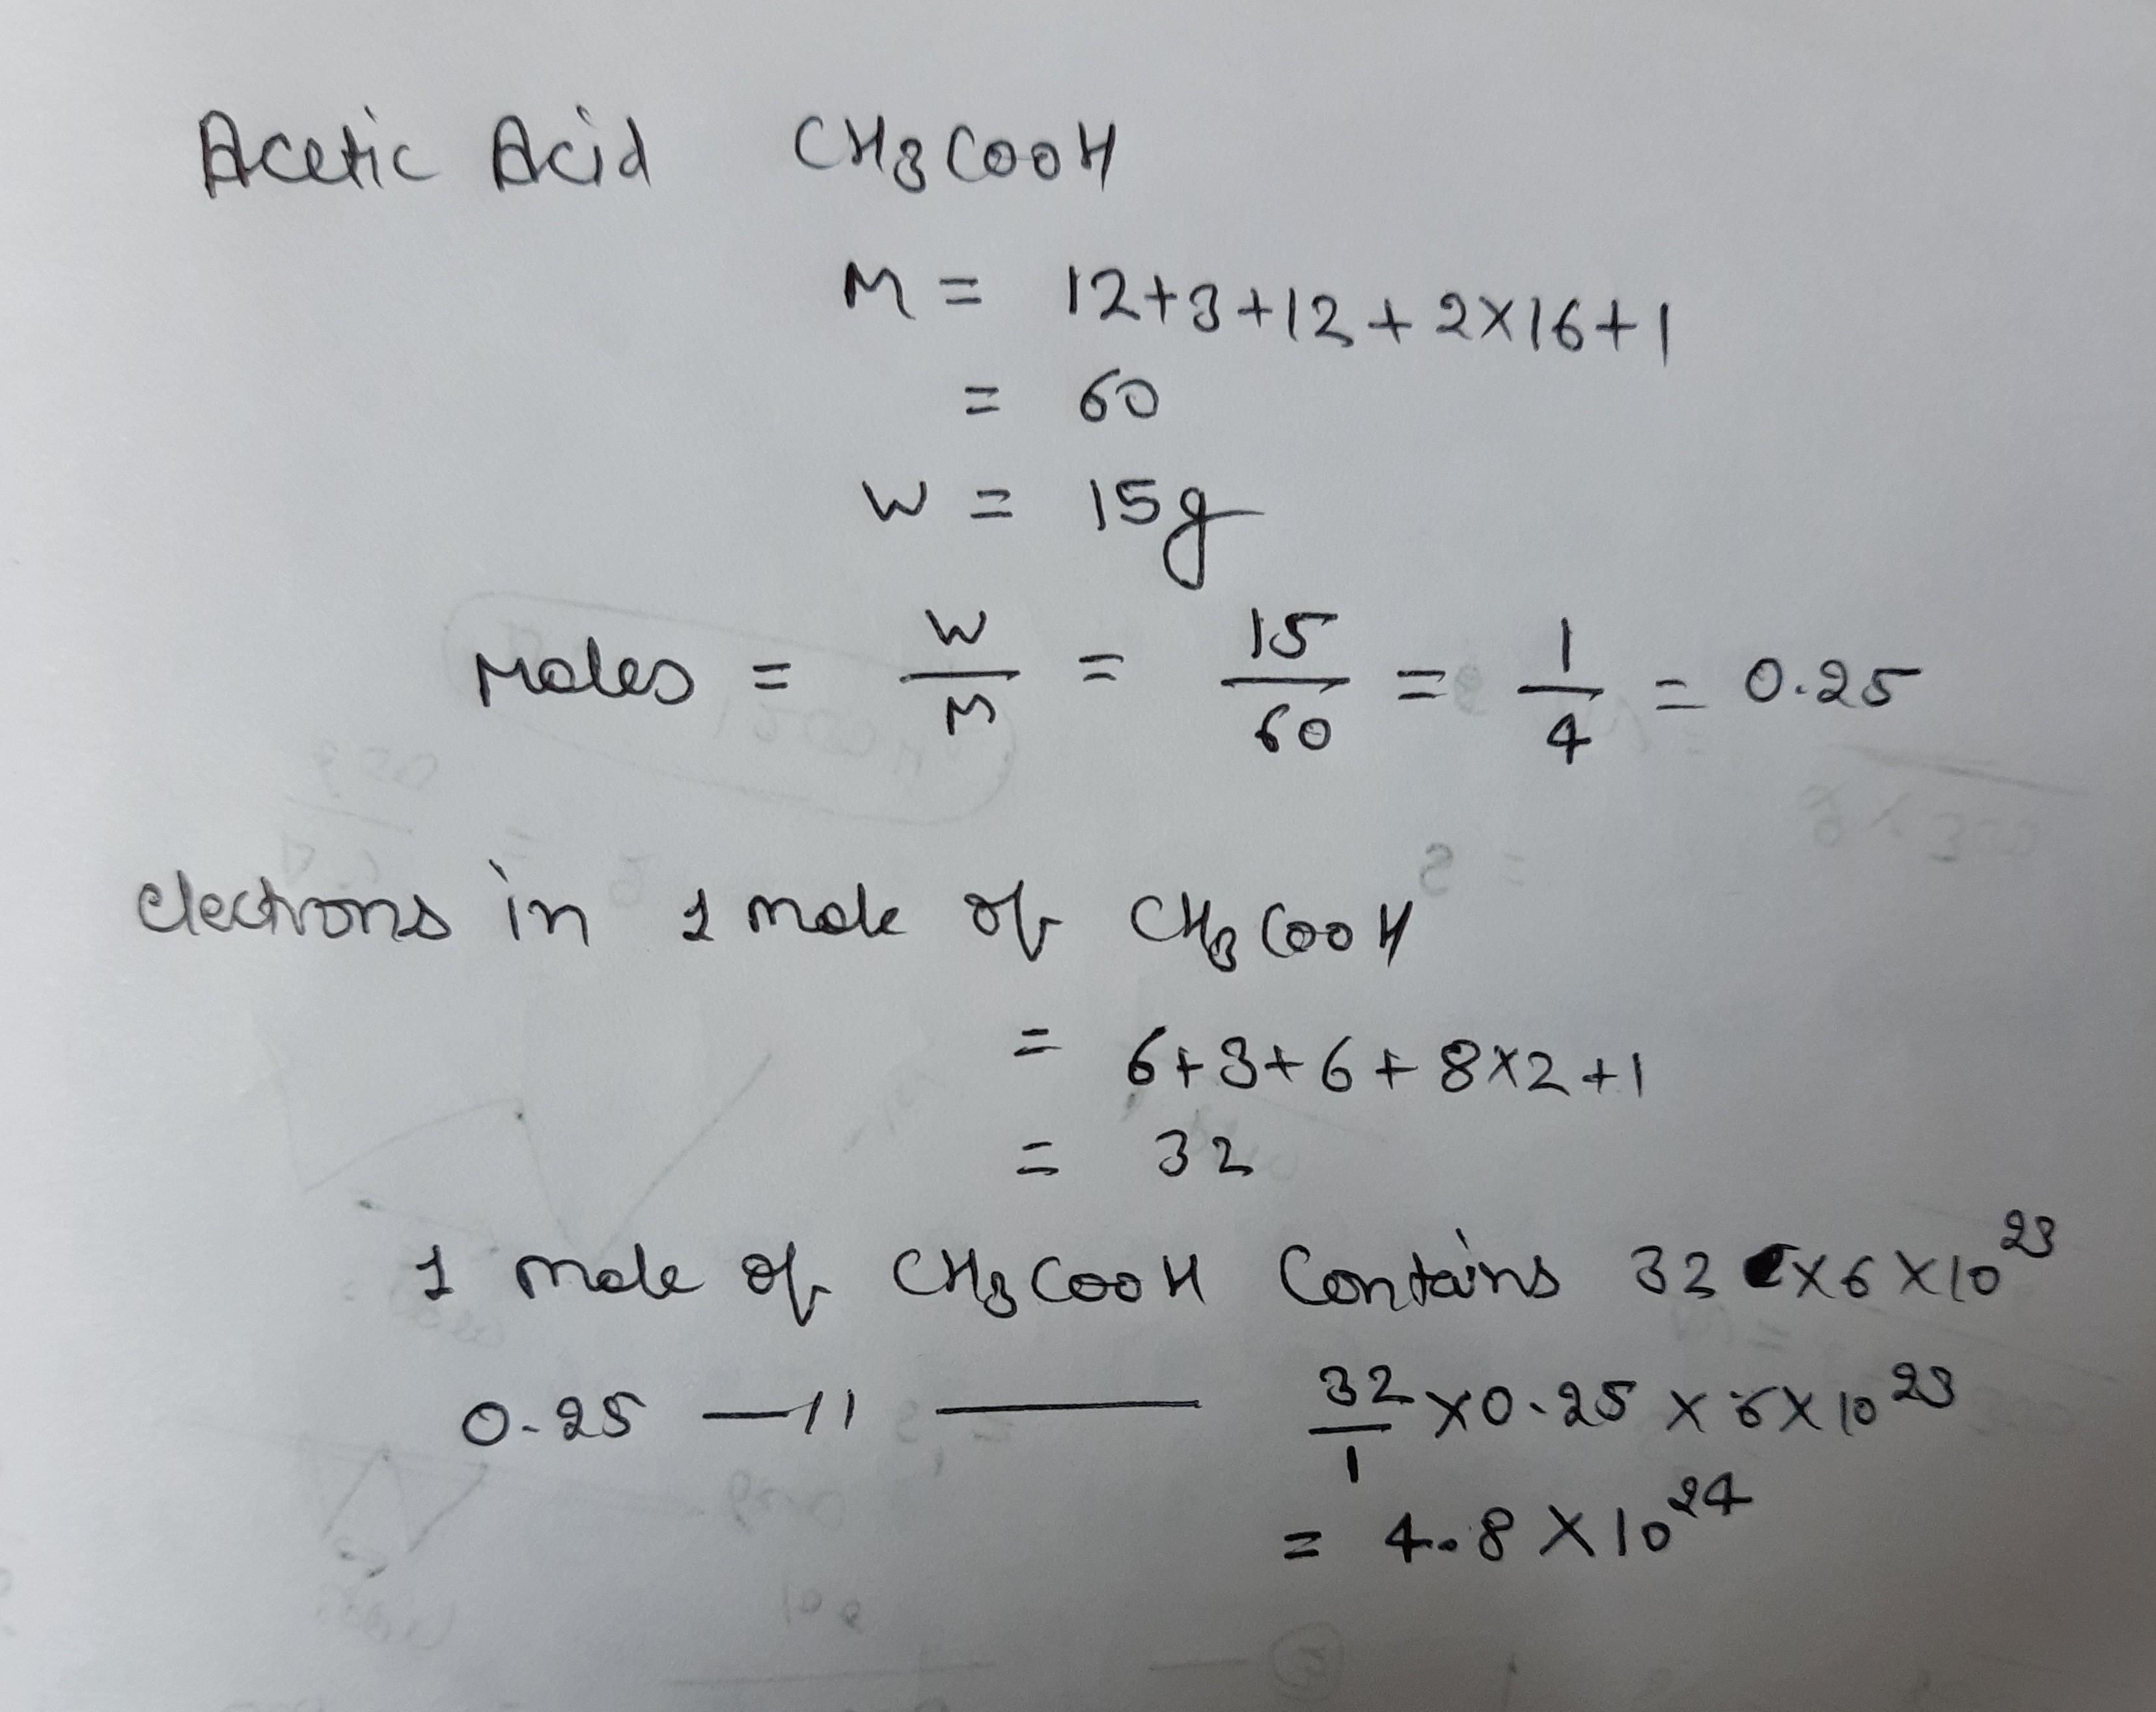 Acetic Acid CH3COOH
M = 12+3+12+2×16+1
= 60
W = 15g
Moles = W/M = 15/60 = 1/4 = 0.25
electrons in 1 mole of CH3COOH
= 6+3+6+8×2+1
= 32
1 mole of CH3COOH Contains 32 ×6×10^23
0.25 —11 —— 32/1 ×0.25×6×10^23
= 4.8×10^24